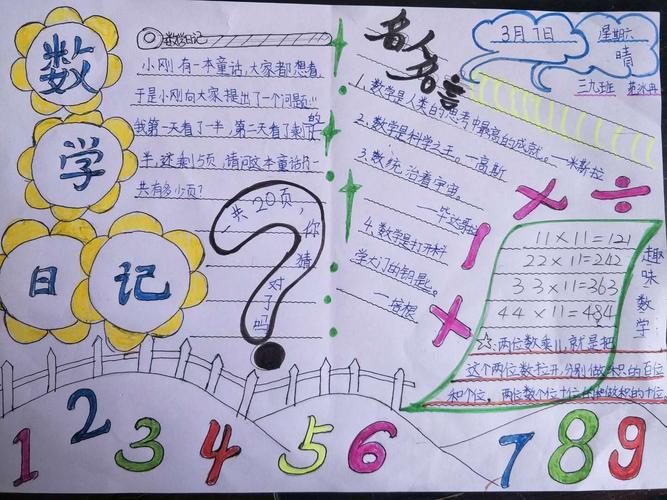 数学日记
数学日记
小刚有一本童话,大家都想看,
于是小刚向大家提出了一个问题:
我第一天看了一半,第二天看了剩下的
半,还剩5页,请问这本童话片一
共有多少页?
一共20页,你猜对了吗
?
名人名言
1、数学是人类的思考中最高的成就。——米斯拉
2、数学是科学之王。——高斯
3、数统治着宇宙。
——毕达哥拉
4、数学是打开科
学大门的钥匙。
——培根
3月7日
星期六
晴
三九班
× ÷
11×11=121
22×11=242
33×11=363
44×11=484
趣味数学:
☆:两位数乘11,就是把
这个两位数拉开,分别做积的百位
和个位,两位数个位十位的和做积的十位。
1 2 3 4 5 6 7 8 9